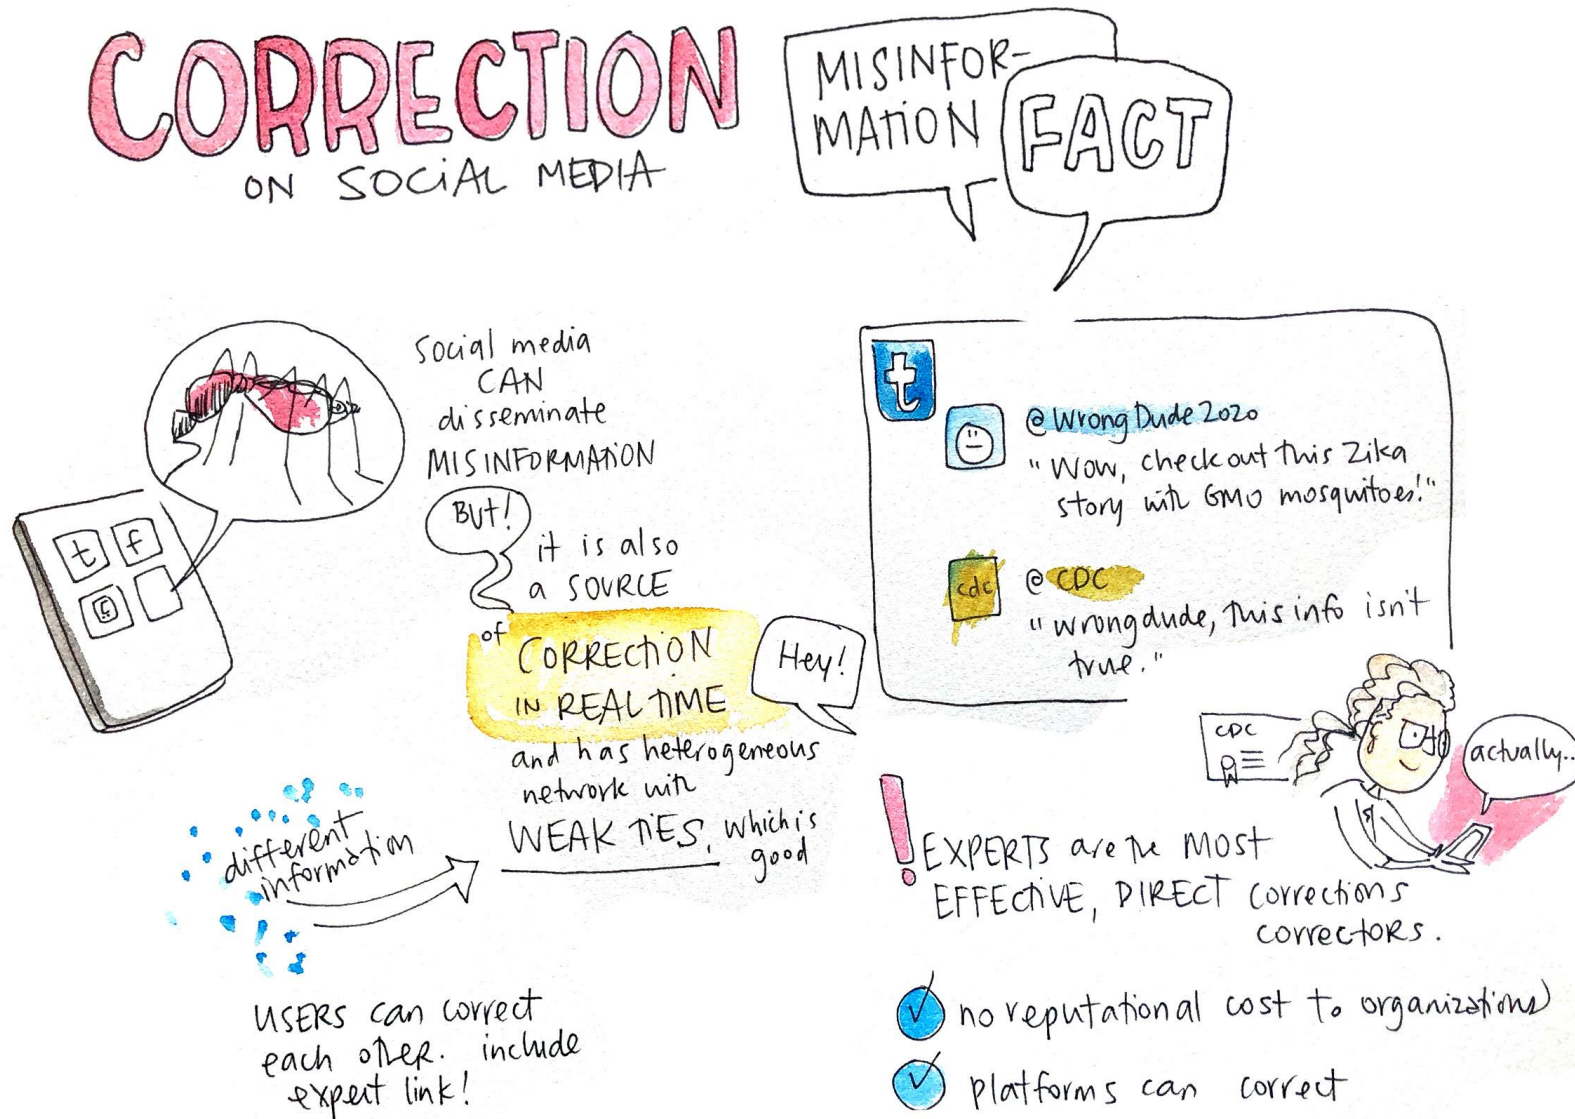 CORRECTION
ON SOCIAL MEDIA
MISINFOR-
MATION
FACT
Social media
CAN
disseminate
MISINFORMATION
But!
it is also
a SOURCE
of
CORRECTION
IN REAL TIME
Hey!
and has heterogeneous
network with
WEAK TIES, which is
good
t f
different
information
USERS can correct
each other. include
expert link!
t
@WrongDude2020
"Wow, check out this Zika
story with GMO mosquitoes!"
cdc
@CDC
"wrongdude, this info isn't
true."
CDC
actually..
! EXPERTS are the MOST
EFFECTIVE, DIRECT corrections
correctors.
✓ no reputational cost to organizations)
✓ platforms can correct